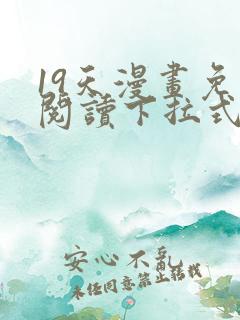 19天漫畫免
閱讀下拉式
安心不亂
未經同意禁止轉載